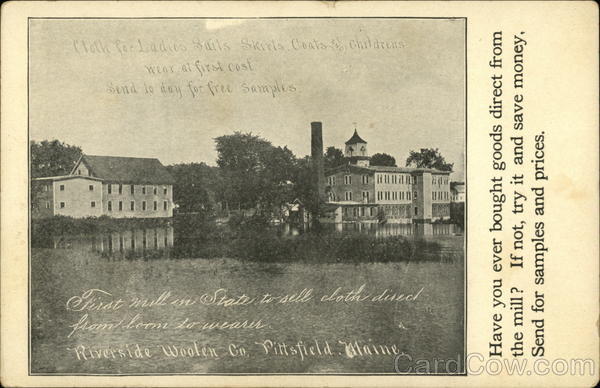 Cloth for Ladies Suits Skirts Coats & Childrens
wear at first cost
Send to day for free samples
First mill in State to sell cloth direct
from loom to wearer
Riverside Woolen Co. Pittsfield, Maine
Have you ever bought goods direct from
the mill? If not, try it and save money,
Send for samples and prices.
CardCow.com